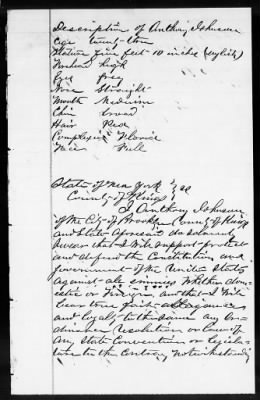 Description of Anthony Johnson
age twenty two
Stature five feet 10 inches (english)
Forhead high
Eye Grey
Nose Straight
Mouth Medium
Chin broad
Hair Red
Complexion Florid
Face Full
State of New York } ss
County of Kings }
I Anthony Johnson
of the City of Brooklyn County of Kings
and State aforesaid do solemnly
swear that I will support protect
and defend the Constitution and
government of the United States
against all enemies whether dom-
estic or foreign, and that I will
bear true faith allegiance
and loyalty to the same any or-
dinance resolution or law of
any State Convention or legisla-
ture to the contrary notwithstanding